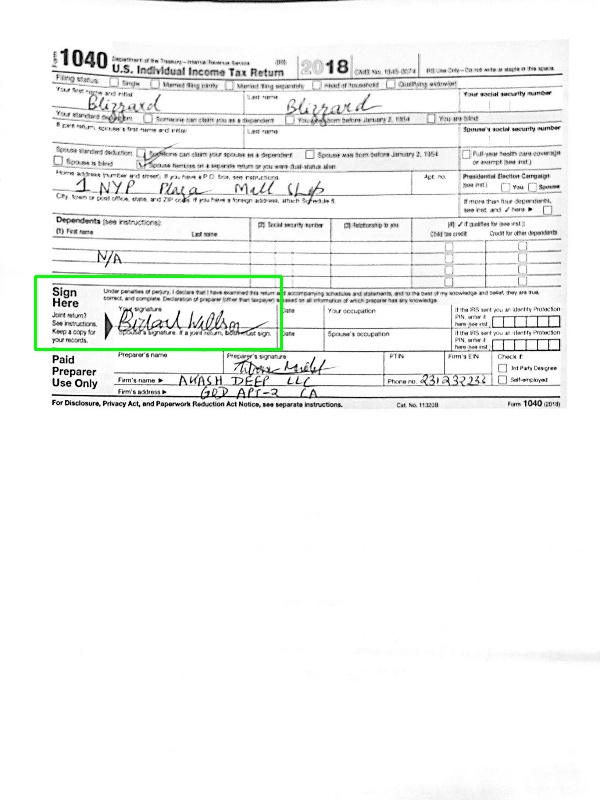 Form 1040 Department of the Treasury—Internal Revenue Service (99) U.S. Individual Income Tax Return 2018 OMB No. 1545-0074 IRS Use Only—Do not write or staple in this space.
Filing status: Single Married filing jointly Married filing separately Head of household Qualifying widow(er)
Your first name and initial Last name Your social security number
Blizzard Blizzard
Your standard deduction Someone can claim you as a dependent You were born before January 2, 1954 You are blind
If joint return, spouse's first name and initial Last name Spouse's social security number
Spouse standard deduction: Someone can claim your spouse as a dependent Spouse was born before January 2, 1954 Full-year health care coverage or exempt (see inst.)
Spouse is blind Spouse itemizes on a separate return or you were dual-status alien
Home address (number and street). If you have a P.O. box, see instructions. Apt. no. Presidential Election Campaign
1 NYP Plaza Mall (see inst.) You Spouse
City, town or post office, state, and ZIP code. If you have a foreign address, attach Schedule 6. If more than four dependents, see inst. and ✓ here ►
Dependents (see instructions): (2) Social security number (3) Relationship to you (4) ✓ if qualifies for (see inst.):
(1) First name Last name Child tax credit Credit for other dependents
N/A
Sign Here Under penalties of perjury, I declare that I have examined this return and accompanying schedules and statements, and to the best of my knowledge and belief, they are true,
correct, and complete. Declaration of preparer (other than taxpayer) is based on all information of which preparer has any knowledge.
Joint return? See instructions. Keep a copy for your records.
Your signature Date Your occupation If the IRS sent you an Identity Protection PIN, enter it here (see inst.)
Spouse's signature. If a joint return, both must sign. Date Spouse's occupation If the IRS sent you an Identity Protection PIN, enter it here (see inst.)
Paid Preparer Use Only
Preparer's name Preparer's signature PTIN Firm's EIN Check if:
3rd Party Designee
Firm's name ► AKASH DEEP LLC Phone no. 231232236 Self-employed
Firm's address ► GOD APT-2 CA
For Disclosure, Privacy Act, and Paperwork Reduction Act Notice, see separate instructions. Cat. No. 11320B Form 1040 (2018)